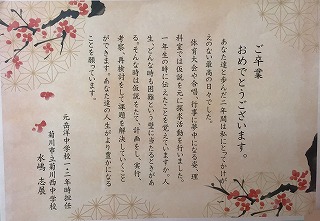 ご卒業
おめでとうございます。
あなた達と歩んだ二年間は私にとってかけが
えのない最高の日々でした。
体育大会や合唱、行事に夢中になる姿、理
科室では仮説を元に探求活動を行いました。
一年生の時に伝えたことを覚えていますか。人
生、どんな時も困難という壁に当たるときがあ
る。そんな時は仮説をたて、計画をし、実行、
考察、再検討をして課題を解決していくこと
ができます。あなた達の人生がより豊かになる
ことを願っています。
元 岳洋中学校 一・二年時担任
菊川市立菊川西中学校
水嶋 志展